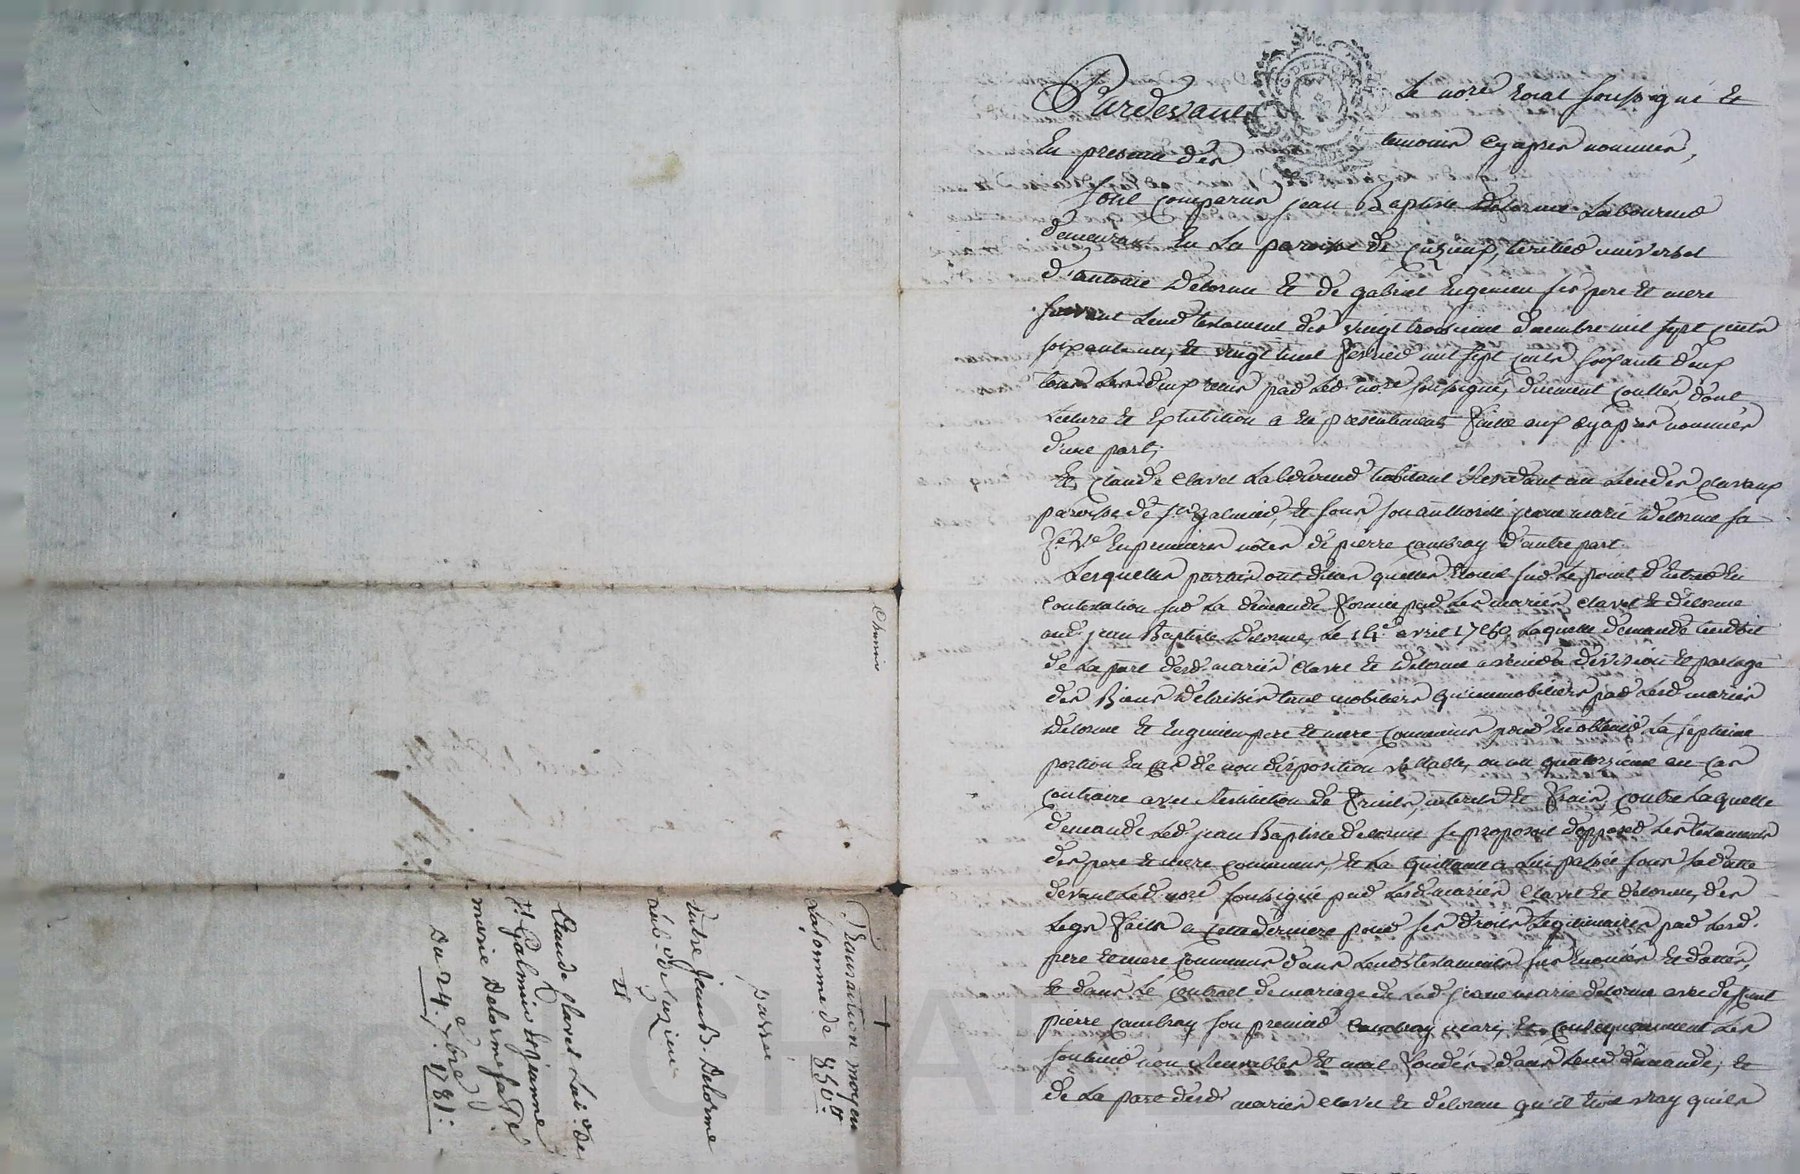 Pardevant Le nore roial soussigné Et
En presence des temoins cy apres nommés,
sont comparus jean Baptiste Delorme Laboureur
demeurant En La paroisse de Cuzieu, heritier universel
d'antoine Delorme Et de gabriel Eugenieu ses pere Et mere
suivant Leurs testament des vingt troisieme decembre mil sept cents
soixante un, Et vingt huit fevrier mil sept cents soixante deux
tous Les deux reçus par Led. nore soussigné, duement controllés, dont
Lecture Et Exhibition a Eté presentement faite aux cy apres nommés
d'une part,
Et Claude Clavel Laboureur habitant residant au Lieu des Clavaux
paroisse de St galmier, Et sous son authorité jeanne marie Delorme sa
fe. ve En premieres nôces de pierre Cambray d'autre part.
Lesquelles parties ont dit qu'elles Etoient sur Le point d'Entrer En
Contestation sur La demande formée par Les mariés Clavel Et delorme
aud. jean Baptiste Delorme, Le avril Laquelle demande tendoit
de La part desd. mariés Clavel Et Delorme a venir a division Et partage
des Biens delaissés tant mobiliers qu'immobiliers par Lesd. mariés
Delorme Et Eugenieu pere Et mere Communs pour En obtenir La septieme
portion En Cas de non disposition vallable, ou un quatorzieme au Cas
Contraire avec restitution de fruits, interets Et frais, Contre Laquelle
demande Led. jean Baptiste delorme se proposoit d'opposer Les testaments
des pere Et mere Communs, Et La quittance a Lui passée sous sa datte
devant Led. nore soussigné par Lesd. mariés Clavel Et delorme, des
Legs faits a Cette derniere pour ses droits Legitimaires par Lesd.
pere Et mere Communs dans Leurs testaments sus Enoncés Et dattés,
Et dans Le Contract de mariage de Lad. jeanne marie delorme avec defunt
pierre Cambray son premier mary, Et Consequemment Les
soutenir non recevables Et mal fondés dans Leur demande; Et
de La part desd. mariés Clavel Et delorme qu'il Etoit vray qu'ils
Transaction moyen
La somme de 850#
passée
Entre Jean B. Delorme
Lab. de Cuzieu
Et
Claude Clavel Lab. de
St Galmier Et jeanne
marie Delorme sa fe
Du 24. 9bre 1781.